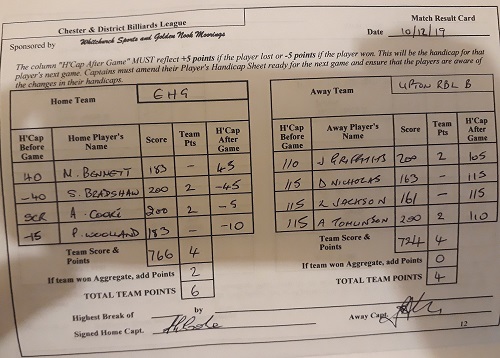 Chester & District Billiards League
Match Result Card
Sponsored by Whitchurch Sports and Golden Nook Moorings
Date 10/12/19
The column "H'Cap After Game" MUST reflect +5 points if the player lost or -5 points if the player won. This will be the handicap for that
player's next game. Captains must amend their Player's Handicap Sheet ready for the next game and ensure that the players are aware of
the changes in their handicaps.
Home Team EHG
H'Cap Before Game Home Player's Name Score Team Pts H'Cap After Game
40 M. BENNETT 183 - 45
-40 S. BRADSHAW 200 2 -45
SCR A. COOKE 200 2 -5
-15 P. WOOLAND 183 - -10
Team Score & Points 766 4
If team won Aggregate, add Points 2
TOTAL TEAM POINTS 6
Away Team UPTON RBL B
H'Cap Before Game Away Player's Name Score Team Pts H'Cap After Game
110 J GRIFFITHS 200 2 105
115 D NICHOLAS 163 - 115
115 L JACKSON 161 - 115
115 A TOMLINSON 200 2 110
Team Score & Points 724 4
If team won Aggregate, add Points 0
TOTAL TEAM POINTS 4
Highest Break of by
Signed Home Capt.
Away Capt.
12